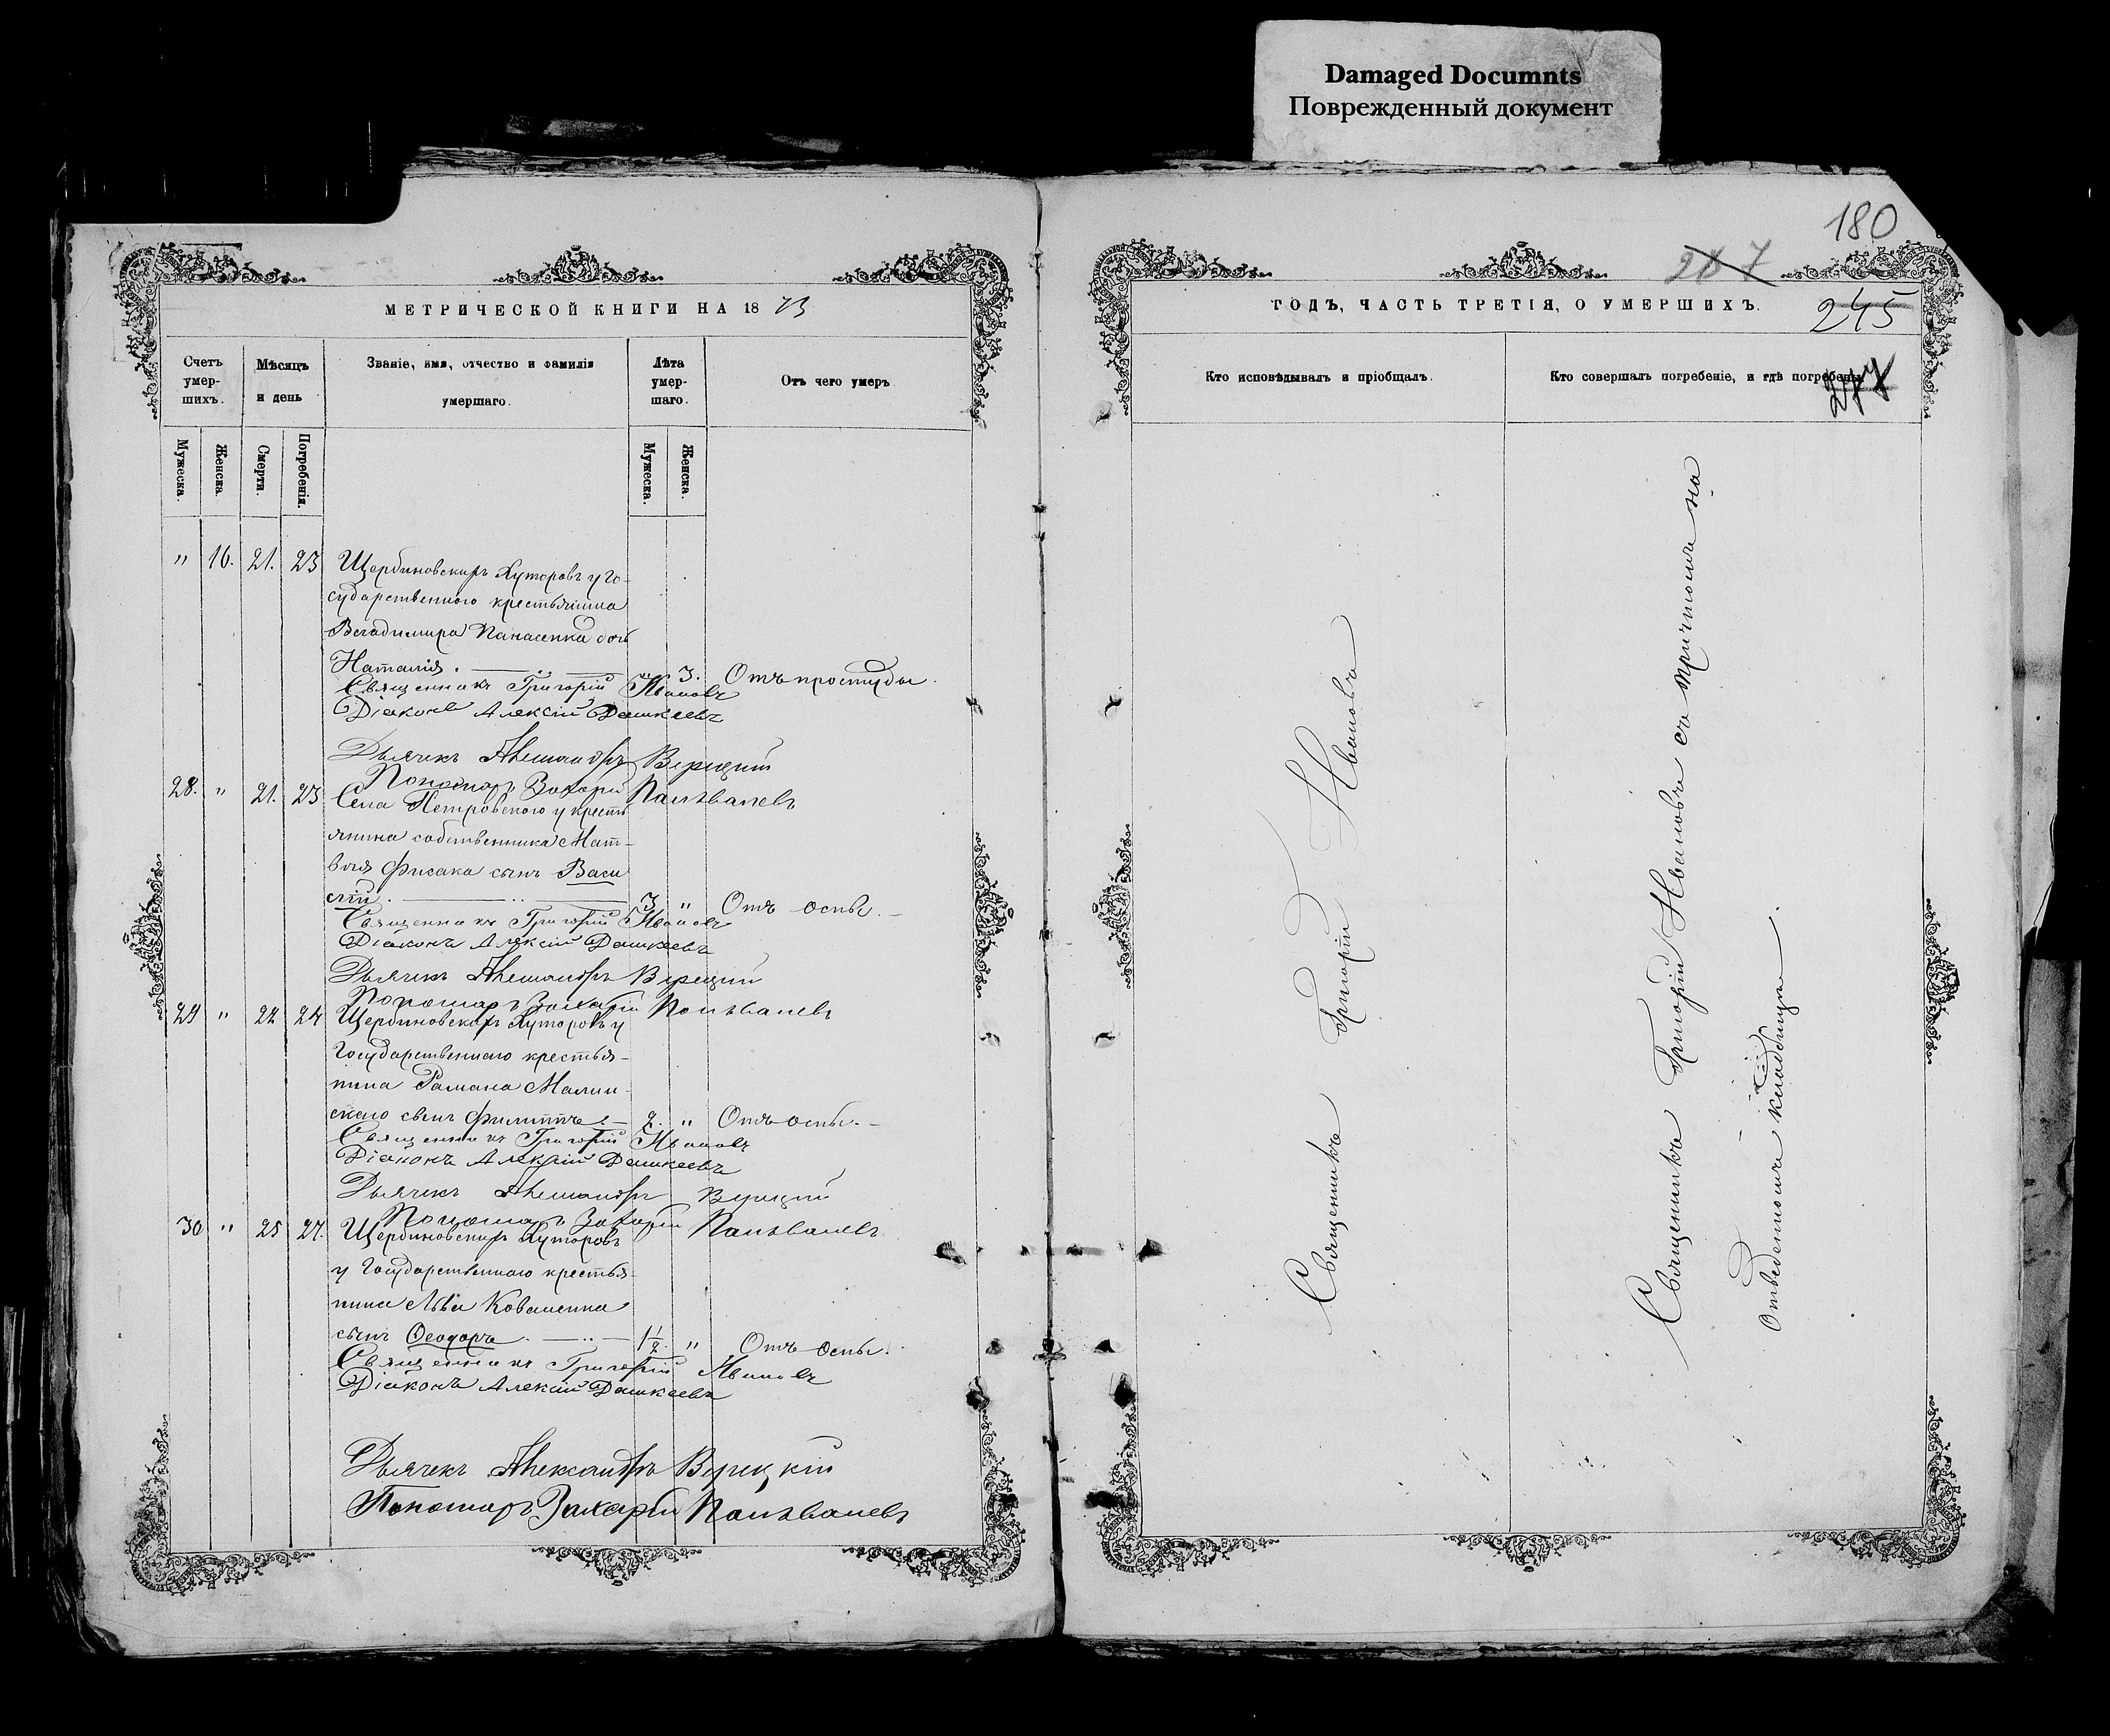 Damaged Documnts
Поврежденный документ
МЕТРИЧЕСКОЙ КНИГИ НА 1873
Счетъ умер-шихъ.
Мѣсяцъ и день
Званіе, имя, отчество и фамилія умершаго.
Лѣта умер-шаго.
Отъ чего умеръ.
Мужеска.
Женска.
Смерти.
Погребенія.
Мужеска.
Женска.
" 16. 21. 23 Щербиновскихъ Хуторовъ у Го-
сударственного крестьянина
Владимира Панасенка дочь
Наталія. " 3. Отъ простуды.
Священникъ Григорій Ивановъ
Діаконъ Алексій Дашкеевъ
Дьячекъ Александръ Верецкій
Пономарь Захарій
28. " 21. 23 Села Петровского у кресть
янина собственника Мат-
вѣя Фисака сынъ Васи
лій. 3 " Отъ оспы.
Священникъ Григорій Ивановъ
Діаконъ Алексій Дашкеевъ
Дьячекъ Александръ Верецкій
Пономарь Захарій
29 " 22 24 Щербиновскихъ Хуторовъ у
Государственнаго крестья-
нина Романа Малин-
скаго сынъ Филиппъ. 2. " Отъ оспы.
Священникъ Григорій Ивановъ
Діаконъ Алексій Дашкеевъ
Дьячекъ Александръ Верецкій
Пономарь Захарій
30 " 25 27. Щербиновскихъ Хуторовъ
у Государственнаго крестья-
нина Льва Коваленка
сынъ Ѳеодоръ. 1 1/2. " Отъ оспы.
Священникъ Григорій Ивановъ
Діаконъ Алексій Дашкеевъ
Дьячекъ Александръ Верецкій
Пономарь Захарій
180
207
ГОДЪ, ЧАСТЬ ТРЕТІЯ, О УМЕРШИХЪ.
245
Кто исповѣдывалъ и пріобщалъ.
Кто совершалъ погребеніе, и гдѣ погребены.
Священникъ Григорій Ивановъ
Священникъ Григорій Ивановъ съ причтомъ на
Отведенномъ кладбищѣ.